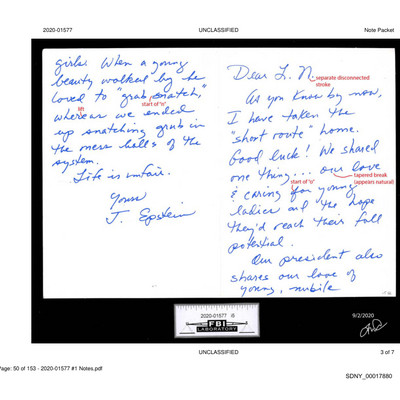 2020-01577
UNCLASSIFIED
Note Packet
girls. When a young
beauty walked by he
loved to "grab snatch,"
start of "n"
lift
whereas we ended
up snatching grub in
the mess halls of the
system.
Life is unfair.
Yours
J. Epstein
Dear L. N.
separate disconnected
stroke
As you know by now,
I have taken the
"short route" home.
Good luck! We shared
one thing... our love
tapered break
(appears natural)
start of "o"
& caring for young
ladies and the hope
they'd reach their full
potential.
Our president also
shares our love of
young, nubile
2020-01577
FBI
LABORATORY
9/2/2020
UNCLASSIFIED
3 of 7
Page: 50 of 153 - 2020-01577 #1 Notes.pdf
SDNY_00017880